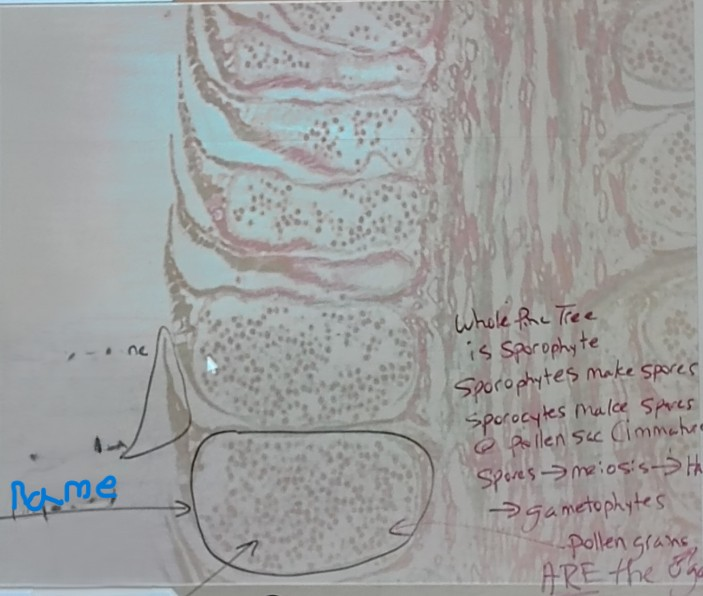 Whole Pine Tree
is Sporophyte
Sporophytes make spores
Sporocytes make Spores
@ pollen sac (immature
Spores → meiosis →
→ gametophytes
ne
Name
pollen grains
ARE the ♂